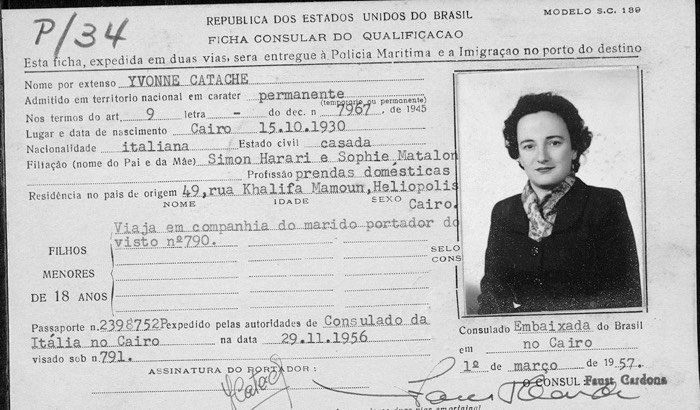 P/34
REPUBLICA DOS ESTADOS UNIDOS DO BRASIL
MODELO S.C. 139
FICHA CONSULAR DO QUALIFICACAO
Esta ficha, expedida em duas vias, sera entregue à Policia Maritima e a Imigraçao no porto do destino
Nome por extenso YVONNE CATACHE
Admitido em territorio nacional em carater permanente
(temporario ou permanente)
Nos termos do art. 9 letra - do dec. n 7967, de 1945
Lugar e data de nascimento Cairo 15.10.1930
Nacionalidade italiana Estado civil casada
Filiação (nome do Pai e da Mãe) Simon Harari e Sophie Matalon
Profissão prendas domésticas
Residência no pais de origem 49, rua Khalifa Mamoun, Heliopolis
NOME IDADE SEXO Cairo.
Viaja em companhia do marido portador do
visto nº790.
FILHOS
MENORES
DE 18 ANOS
SELO
CONS
Passaporte n. 2398752P expedido pelas autoridades de Consulado da
Itália no Cairo na data 29.11.1956
visado sob n. 791.
ASSINATURA DO PORTADOR:
Consulado Embaixada do Brasil
em no Cairo
1º de março de 1957.
O CONSUL Faust. Cardona